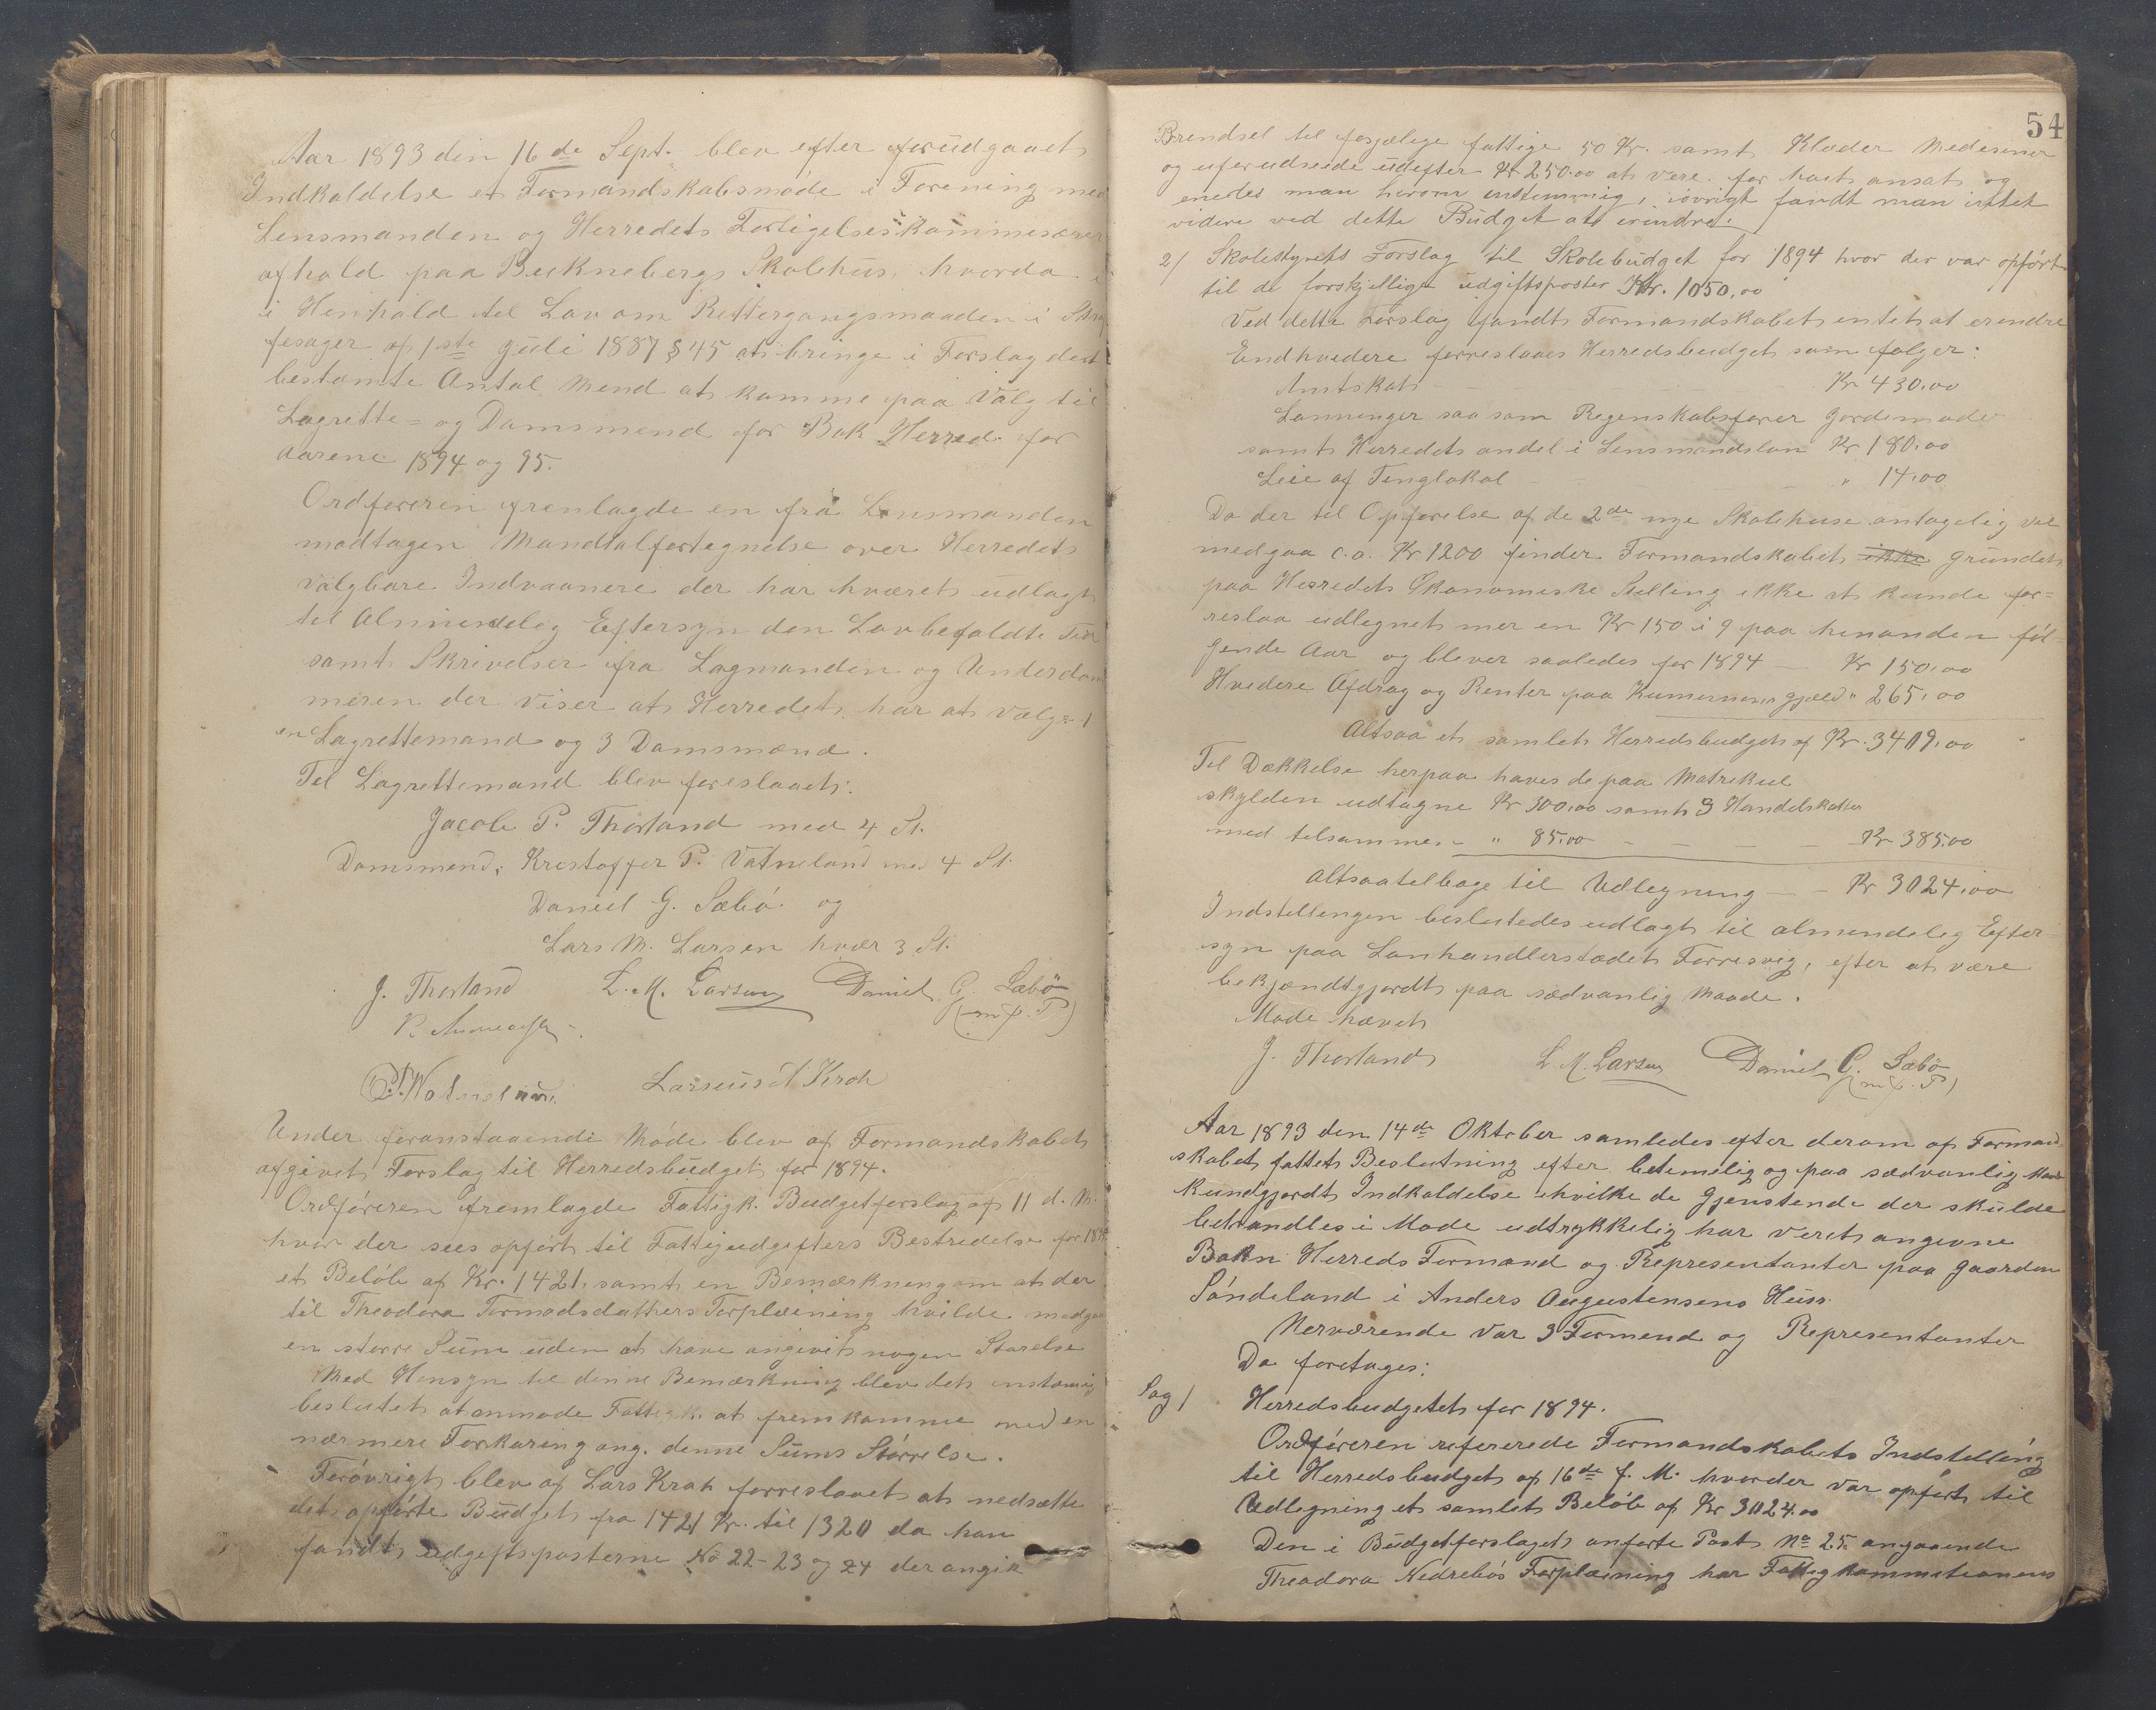 Aar 1893 den 16de Sept. blev efter forudgaaet
Indkaldelse et Formandskabsmøde i Forening med
Lensmanden og Herredets Fortigelseskommisærer
afhold paa Bukneberg Skolehus, hvorda
i Henhold til Lov om Rettergangsmaaden i
fesager af 1ste Juli 1887 § 45 at bringe i Forslag det
bestemte Antal Mend at komme paa Valg til
Lagrette- og Domsmend for Bok Herred for
Aarene 1894 og 95.
Ordføreren fremlagde en fra Lensmanden
modtagen Mandtalfortegnelse over Herredets
valgbare Indvaanere der har hværet udlagt
til Almindelig Eftersyn den Lovbefaldte Tid
samt Skrivelser fra Lagmanden og Underdom
meren der viser at Herredet har at vælge 1
en Lagrettemand og 3 Domsmænd.
Til Lagrettemand blev foreslaaet:
Jacob P. Thorland med 4 St.
Domsmend: Kristoffer P. Vatneland med 4 St.
Daniel G. Sæbø og
Lars M. Larsen hver 3 St.
J. Thorland L. M. Larsen Daniel G. Sæbø
(m. f. P)
Larsius A Kroh
Under foranstaaende Møde blev af Formandskabet
afgivet Forslag til Herredsbudget for 1894.
Ordføreren fremlagde Fattigk. Budgetforslag af 11 d. M.
hvor der sees opført til Fattigudgifters Bestridelse for 1894
et Beløb af Kr. 1421, samt en Bemærkning om at der
til Theodora Tormodsdatters Forplæining hvilde medgaa
en større Sum uden at have angivet nogen Størelse
Med Hensyn til denne Bemærkning blev det enstemig
beslutet at anmode Fattigk. at fremkomme med en
nærmere Forklaring ang. denne Sums Størrelse.
Forøvrigt blev af Lars Kroh forreslaaet at nedsætte
det opførte Budget fra 1421 Kr. til 1320 da han
fandt udgiftsposterne No 22-23 og 24 der angik
54
Brendsel til forjælige fattige 50 Kr. samt Klæder Medesiner
og uforudseede udgifter Kr 250.00 at være for høit ansat og
enedes man herom enstemmig, iøvrigt fandt man intet
videre ved dette Budget at erindre.
2/ Skolestyrets Forslag til Skolebudget for 1894 hvor der var opført
til de forskjellige udgiftsposter Kr. 1050,00
Ved dette Forslag fandt Formandskabet entet at erendre
Endhvidere forreslaaes Herredsbudget som følger:
Amtskat Kr 430.00
Lønninger saa som Regenskabsfører Jordemoder
samt Herredets andel i Lensmandsløn Kr 180.00
Leie af Tinglokal " 14.00
Da der til Opførelse af de 2de nye Skolehuse antagelig vil
medgaa c.a. Kr 1200 finder Formandskabet ikke grundet
paa Herredets Økonomiske Stelling ikke at kunde for=
reslaa udlegnet mer en Kr 150 i 9 paa hinanden føl-
gende Aar og blever saaledes for 1894 — Kr 150.00
Hvidere Afdrag og Renter paa Kumunens gjæld " 265.00
Altsaa et samlet Herredsbudget af Kr. 3409.00
Til Dækkelse herpaa haves de paa Matrikul
skylden udtagne Kr 300.00 samt 3 Handelskatter
med tilsammen " 85.00 — Kr 385.00
Altsaa tilbage til Udlegning — Kr 3024.00
Indstillingen beslutedes udlagt til almindelig Efter-
syn paa Lanhandlerstædet Førresvig, efter at være
bekjændtgjordt paa sædvanlig Maade.
Møde hævet
J. Thorland L. M. Larsen Daniel G. Sæbø
(m. f. P)
Aar 1893 den 14de Oktober samledes efter derom af Formand
skabet fattet Beslutning efter betimelig og paa sædvanlig Maade
Kundgjordt Indkaldelse i hvilke de Gjenstende der skulde
behandles i Møde udtrykkelig har veret angivne
Bokn Herreds Formænd og Representanter paa Gaarden
Søndeland i Anders Augustensens Huus.
Nerværende var 3 Formend og Representanter
Da foretages:
Sag 1 Herredsbudgetet for 1894.
Ordføreren refererede Formandskabets Indstelling
til Herredsbudget af 16de f. M. hvorder var opført til
Udlegning et samlet Beløb af Kr 3024.00
Den i Budgetforslaget anførte Post No 25 angaaende
Theodora Nedrebøs Forplæining har Fattigkommitionens